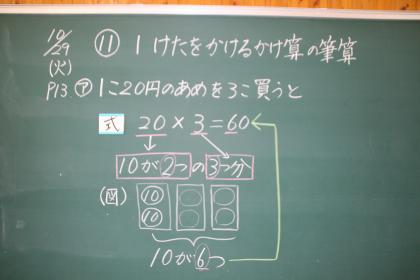 10/29 ⑪ 1けたをかけるかけ算の筆算
(火)
P13 ㋐ 1こ20円のあめを3こ買うと
式 20×3=60
10が2つの3つ分
(図) 10
10
10が6つ